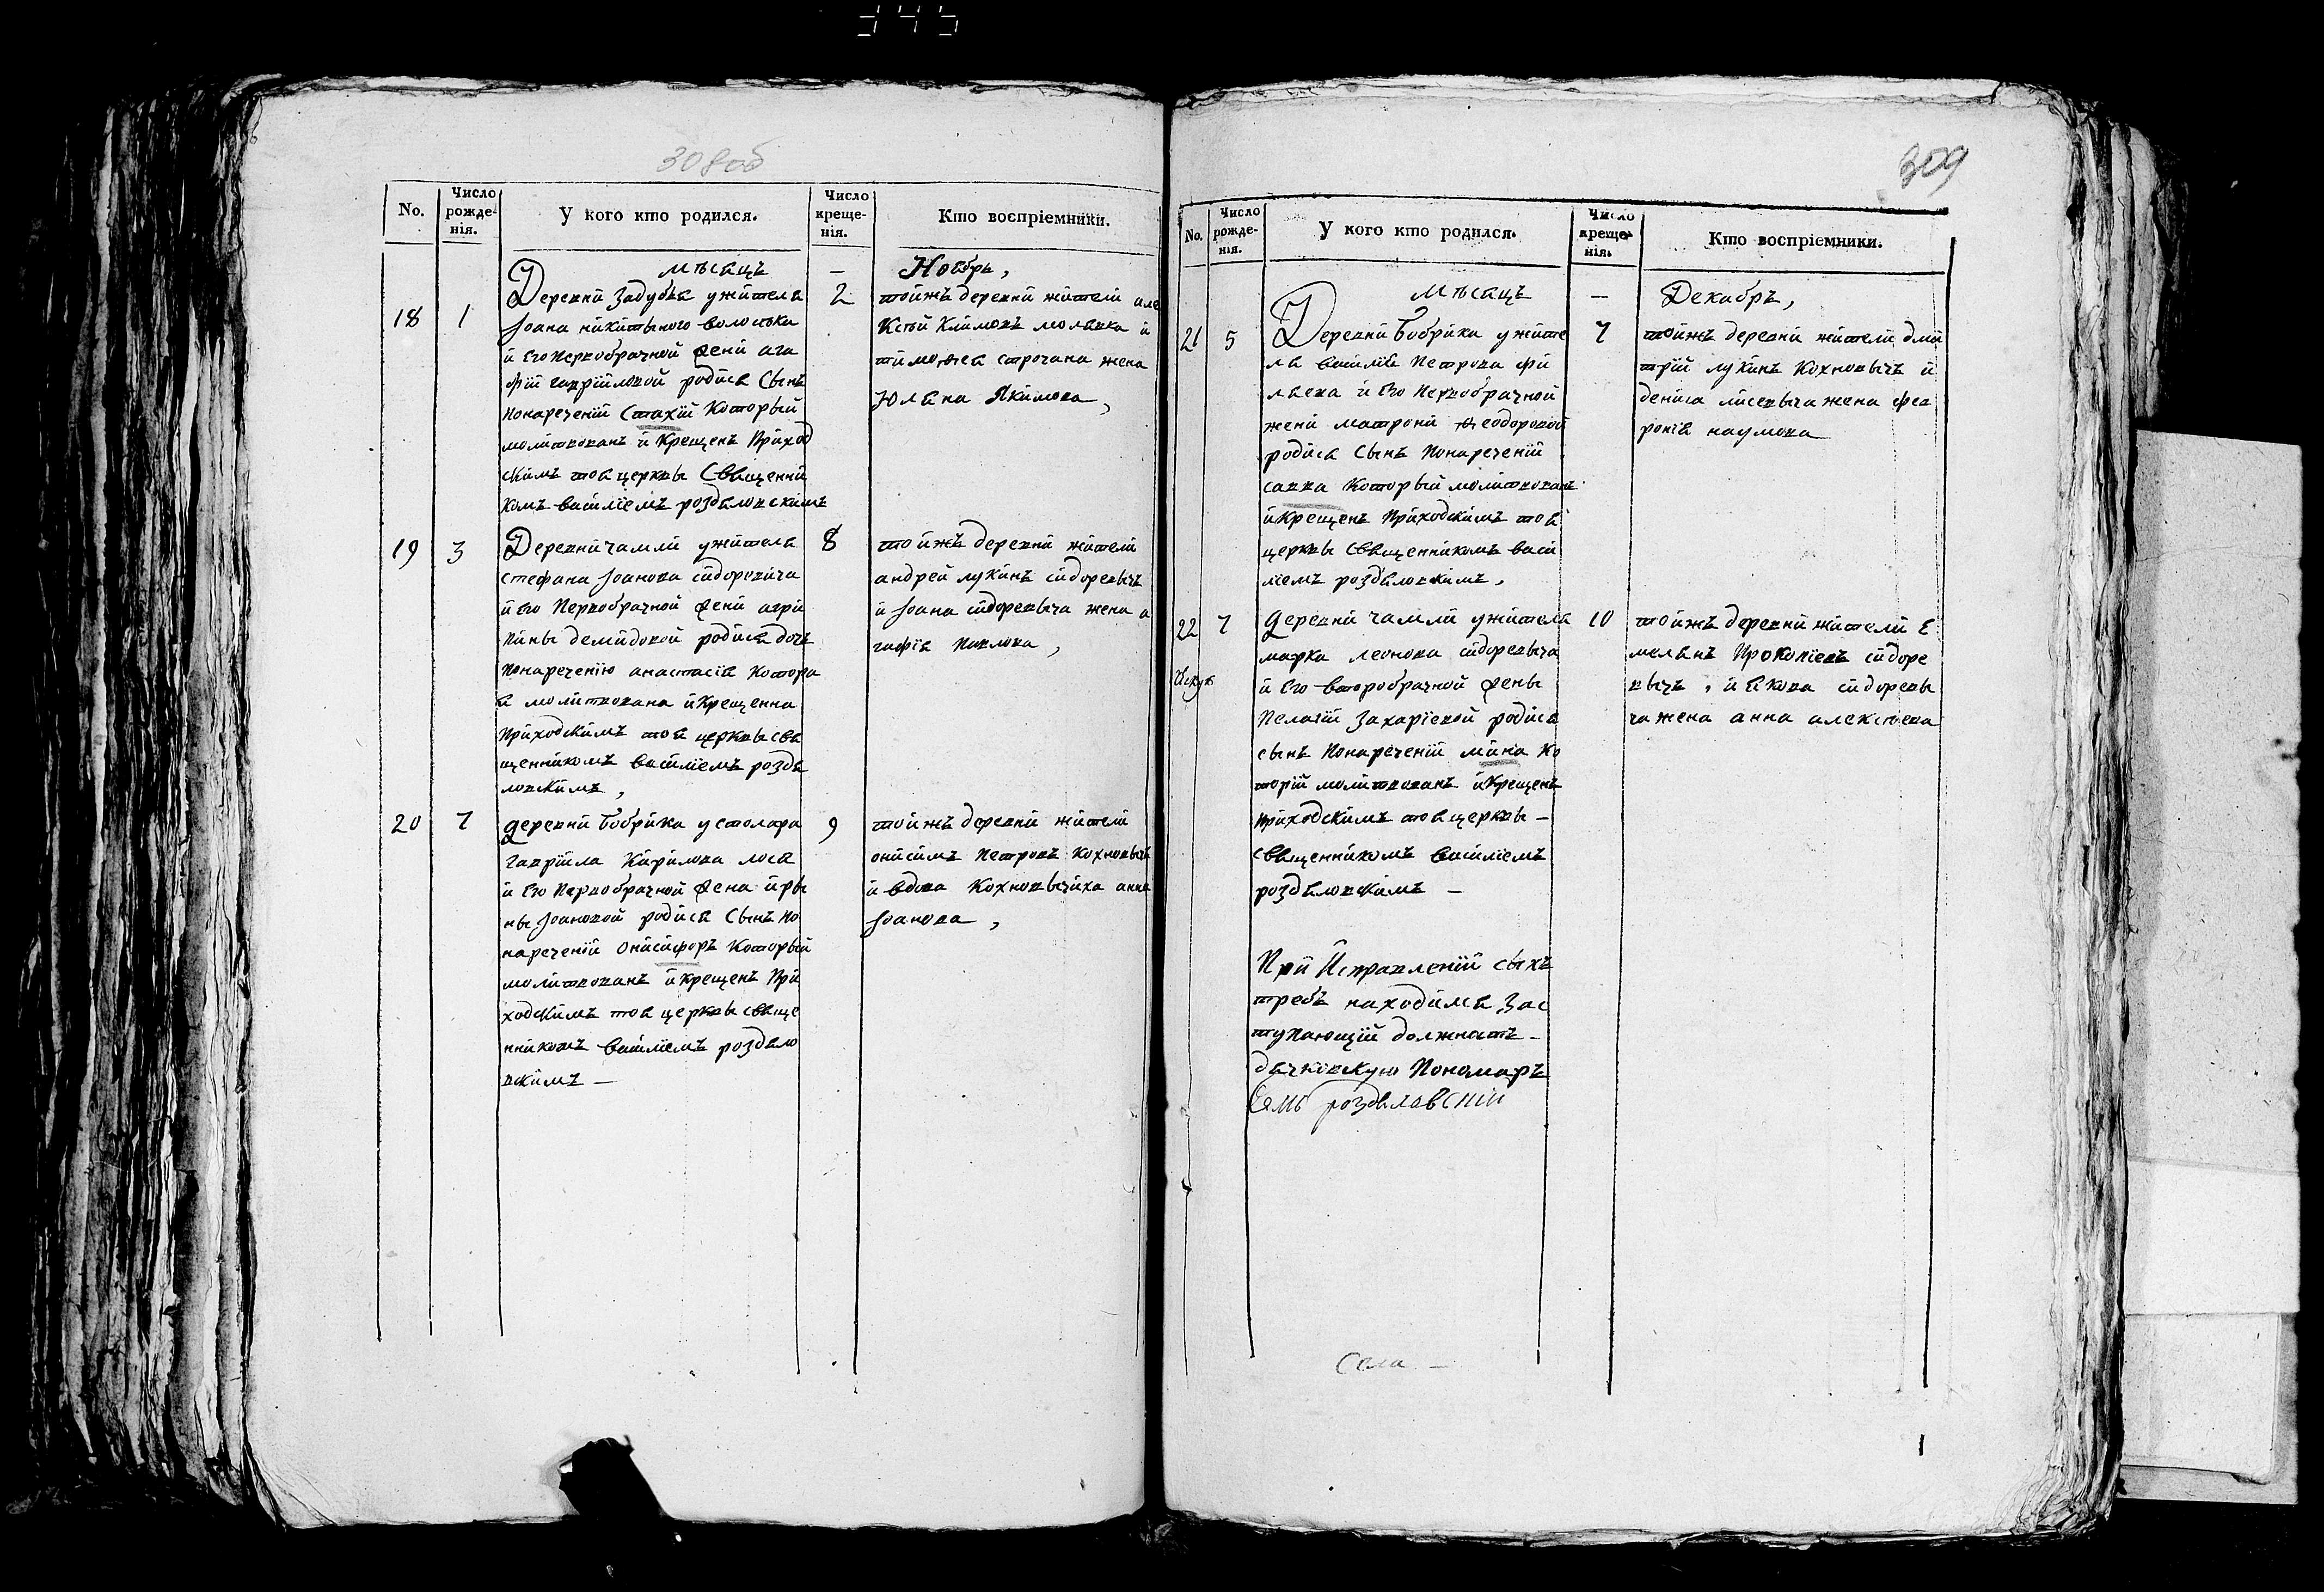 345
308 об
No.
Число рожде-нія.
У кого кто родился.
Число креще-нія.
Кто воспріемники.
Мѣсяцъ — Ноябрь,
18
1
Деревни Задубья у жителя
Іоана никитыного
и его первобрачной жени ага
фіи гавріиловой родися сынъ
понареченіи Стахій который
молитвованъ и крещенъ приход
скимъ тоя церквы священни
комъ василіемъ роздяловскимъ
2
тоижъ деревни жители але
ксѣй климовъ молявка и
тимофея строчана жена
Юляна Якимова,
19
3
Деревни чамли у жителя
стефана Іоанова сидоревича
и его первобрачной жени агри
пины демидовой родися дочь
понареченію анастасія котора
я молитвована и крещенна
приходскимъ тоя церквы свя
щенникомъ василіемъ роздя
ловскимъ,
8
тоижъ деревни жители
андрей лукинъ сидоревычъ
и Іоана сидоревыча жена а
гафія павлова,
20
7
деревни бобрика у столяра
гавріила кирилова лося
и его первобрачной жена иры
ны Іоановой родися сынъ по
нареченіи онисифоръ который
молитвованъ и крещенъ при
ходскимъ тоя церквы свяще
нникомъ василіемъ роздяло
вскимъ —
9
тоижъ деревни жители
онисимъ петровъ кохновычъ
и вдова кохновычиха анна
Іоанова,
309
No.
Число рожде-нія.
У кого кто родился.
Число креще-нія.
Кто воспріемники.
Мѣсяцъ — Декабръ,
21
5
Деревни бобрика у жите
ля василія петрова фи
ляева и его первобрачной
жени матрони феодоровой
родися сынъ понареченіи
савва который молитвованъ
и крещенъ приходскимъ тоя
церквы священникомъ васи
ліемъ роздяловскимъ,
7
тоижъ деревни жители дми
трій лукинъ кохновычъ и
дениса лисевыча жена фев
ронія наумова
22
7
деревни чамли у жителя
марка леонова сидоревыча
и его второбрачной жены
пелагіи захаріевой родися
сынъ понареченіи мина ко
торій молитвованъ и крещенъ
приходскимъ тоя церквы —
священникомъ василіемъ
роздяловскимъ —
10
тоижъ деревни жители е
мелянъ прокопіевъ сидоре
вычъ, и якова сидоревы
ча жена анна алексѣева
При Исправленіи сыхъ
требъ находился, зас
тупающій должность —
дячковскую пономаръ
роздяловскій
Села —